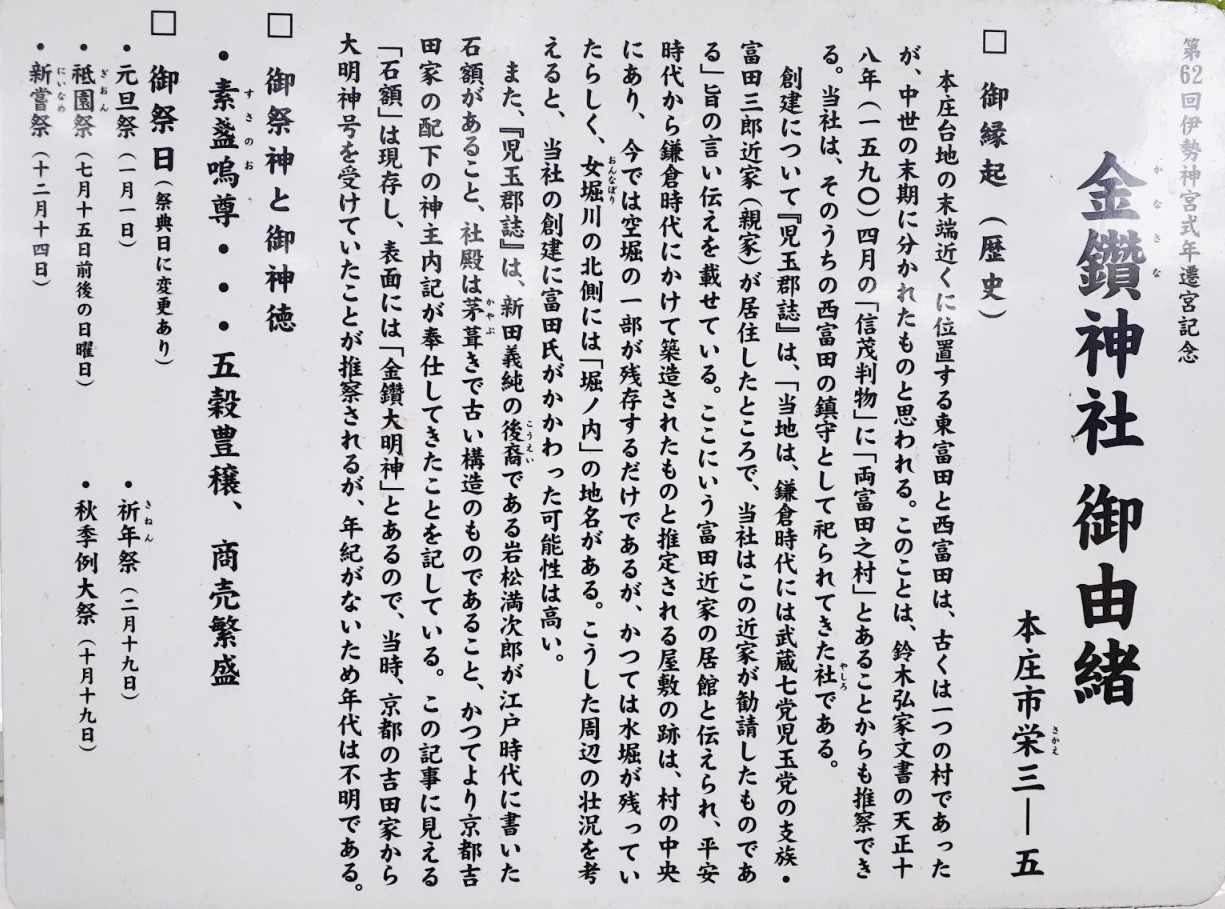 第62回伊勢神宮式年遷宮記念
金鑽神社 御由緒
かなさな
本庄市栄三―五
さかえ
□ 御縁起(歴史)
本庄台地の末端近くに位置する東富田と西富田は、古くは一つの村であった
が、中世の末期に分かれたものと思われる。このことは、鈴木弘家文書の天正十
八年(一五九〇)四月の「信茂判物」に「両富田之村」とあることからも推察でき
る。当社は、そのうちの西富田の鎮守として祀られてきた社である。
やしろ
創建について『児玉郡誌』は、「当地は、鎌倉時代には武蔵七党児玉党の支族・
富田三郎近家(親家)が居住したところで、当社はこの近家が勧請したものであ
る」旨の言い伝えを載せている。ここにいう富田近家の居館と伝えられ、平安
時代から鎌倉時代にかけて築造されたものと推定される屋敷の跡は、村の中央
にあり、今では空堀の一部が残存するだけであるが、かつては水堀が残ってい
たらしく、女堀川の北側には「堀ノ内」の地名がある。こうした周辺の壮況を考
おんなぼり
えると、当社の創建に富田氏がかかわった可能性は高い。
また、『児玉郡誌』は、新田義純の後裔である岩松満次郎が江戸時代に書いた
こうえい
石額があること、社殿は茅葺きで古い構造のものであること、かつてより京都吉
かやぶ
田家の配下の神主内記が奉仕してきたことを記している。この記事に見える
「石額」は現存し、表面には「金鑽大明神」とあるので、当時、京都の吉田家から
大明神号を受けていたことが推察されるが、年紀がないため年代は不明である。
□ 御祭神と御神徳
・素盞嗚尊・・・五穀豊穣、商売繁盛
すさのお
□ 御祭日(祭典日に変更あり)
・元旦祭(一月一日)
・祈年祭(二月十九日)
きねん
・祗園祭(七月十五日前後の日曜日)
ぎおん
・秋季例大祭(十月十九日)
・新嘗祭(十二月十四日)
にいなめ